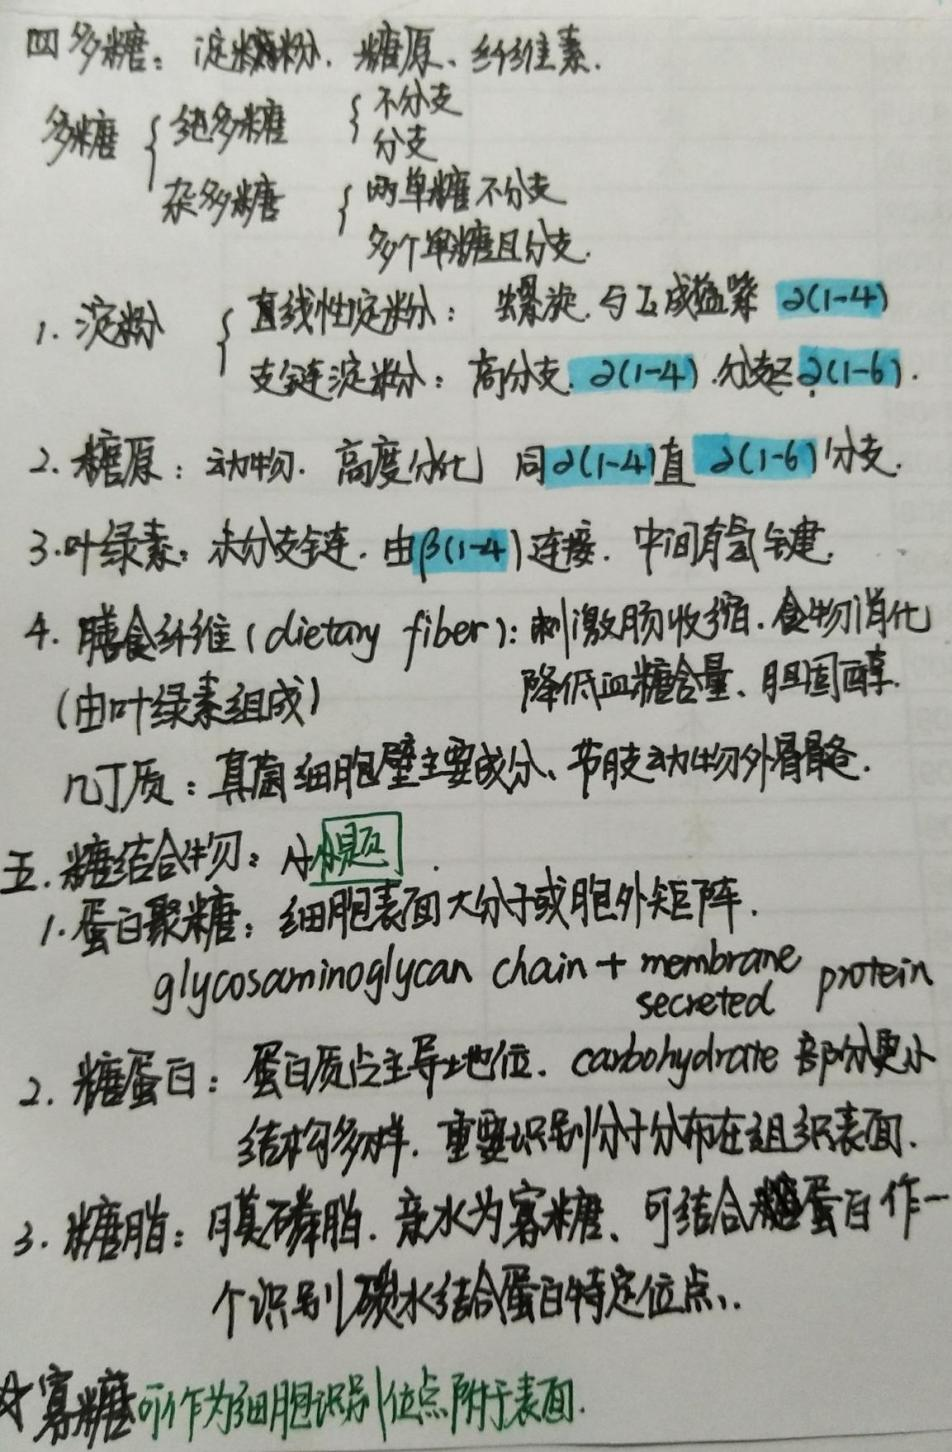 四 多糖：淀粉、糖原、纤维素.
多糖 { 纯多糖 { 不分支
分支
杂多糖 { 两单糖不分支
多个单糖且分支.
1. 淀粉 { 直线性淀粉： 螺旋. 与I₂成蓝紫 α(1-4)
支链淀粉：高分支. α(1-4) .分支α(1-6).
2. 糖原：动物. 高度分化 同α(1-4)直 α(1-6)分支.
3.叶绿素：未分支链. 由β(1-4)连接. 中间有氢键.
4. 膳食纤维 (dietary fiber)：刺激肠收缩. 食物消化
(由叶绿素组成) 降低血糖含量、胆固醇.
几丁质：真菌细胞壁主要成分、节肢动物外骨骼.
五. 糖结合物：小题.
1. 蛋白聚糖：细胞表面大分子或胞外矩阵.
glycosaminoglycan chain + membrane protein
secreted
2. 糖蛋白：蛋白质占主导地位. carbohydrate 部分更小
结构多样. 重要识别分子分布在组织表面.
3. 糖脂：膜磷脂. 亲水为寡糖、可结合糖蛋白作一
个识别碳水结合蛋白特定位点.
☆ 寡糖可作为细胞识别位点附于表面.